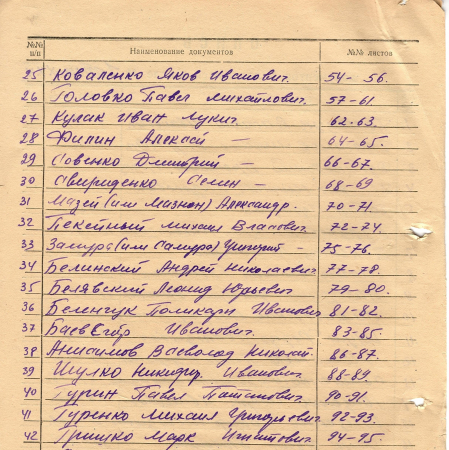 №№ п/п Наименование документов №№ листов
25 Коваленко Яков Иванович. 54 - 56.
26 Головко Павел Михайлович. 57-61.
27 Кулак Иван Лукич. 62-63.
28 Филин Алексей — 64-65.
29 Совенко Дмитрий — 66-67.
30 Свириденко Семен — 68-69
31 Мазей (или Мизнон) Александр. 70-71.
32 Пекейный Михаил Власович. 72-74.
33 Замура (или Самура) Григорий — 75-76.
34 Белинский Андрей Николаевич. 77-78.
35 Белявский Леонид Юрьевич 79-80.
36 Беленчук Поликарп Иванович 81-82.
37 Баев Егор Иванович. 83-85.
38 Анисимов Всеволод Николай. 86-87.
39 Шулко Никифор Иванович. 88-89.
40 Гурин Павел Потапович. 90-91.
41 Гуренко Михаил Григорьевич. 92-93.
42 Гришко Марк Игнатович. 94-95.